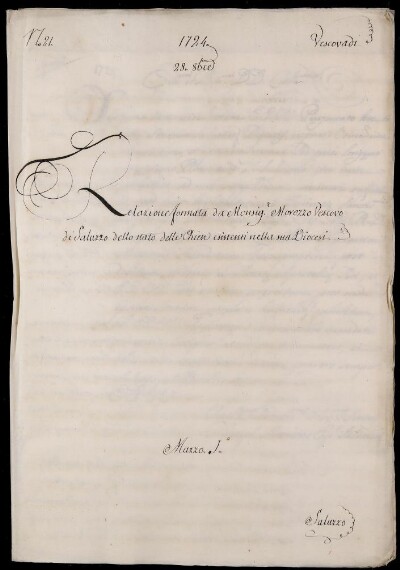 N.o 21. 1724. Vescovadi
28. 8bre
Relazione formata da Monsig.r Morozzo Vescovo
di Saluzzo dello stato delle Chiese esistenti nella sua Diocesi.
Mazzo 1.o
Saluzzo